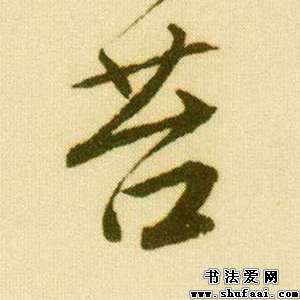 苔
书法爱网
www.shufaai.com